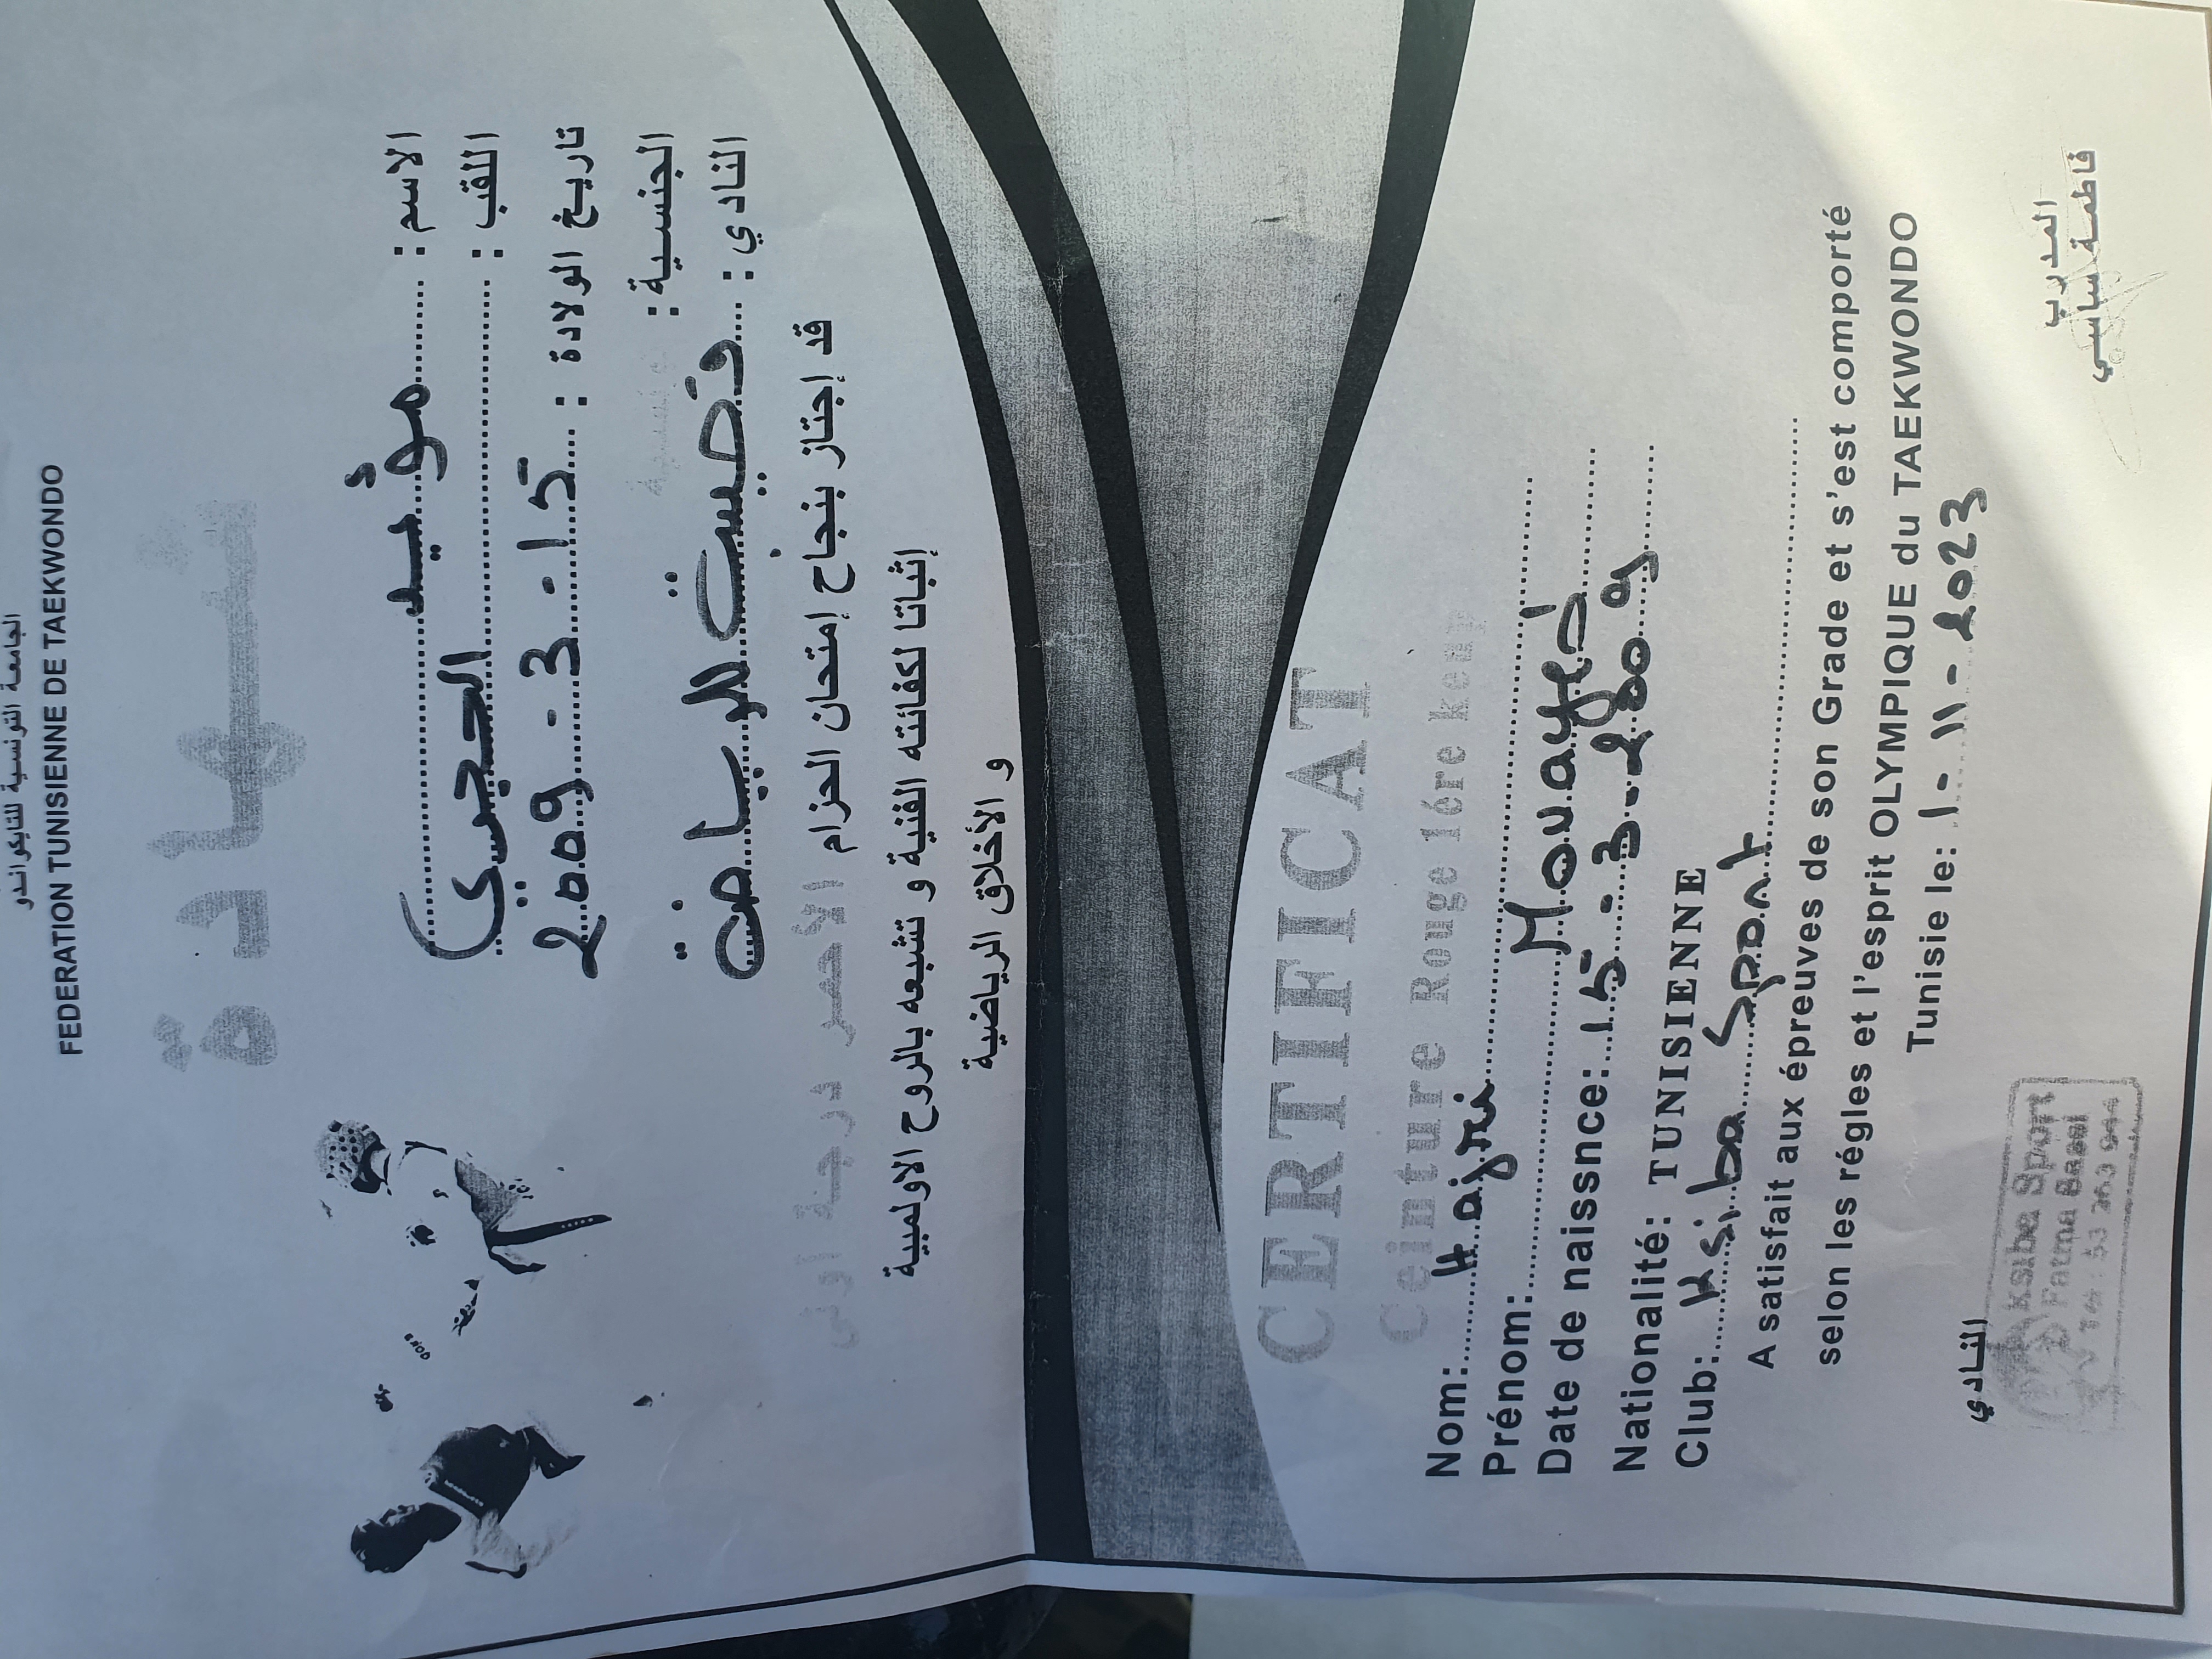 الجامعة التونسية للتايكواندو
FEDERATION TUNISIENNE DE TAEKWONDO
شهادة
الاسم : مؤيد
اللقب : الحجري
تاريخ الولادة : 15-3-2009
الجنسية : تونسية
النادي : قصيبة للرياضة
قد إجتاز بنجاح إمتحان الحزام الأحمر درجة اولى
إثباتا لكفائته الفنية و تشبعه بالروح الاولمبية
و الأخلاق الرياضية
CERTIFICAT
Ceinture Rouge 1ére keup
Nom: Hajri
Prénom: Mouayed
Date de naissnce: 15-3-2009
Nationalité: TUNISIENNE
Club: Ksiba Sport
A satisfait aux épreuves de son Grade et s'est comporté
selon les régles et l'esprit OLYMPIQUE du TAEKWONDO
Tunisie le: 1-11-2023
المدرب
فاطمة ساسي
النادي
Ksiba Sport
Fatma